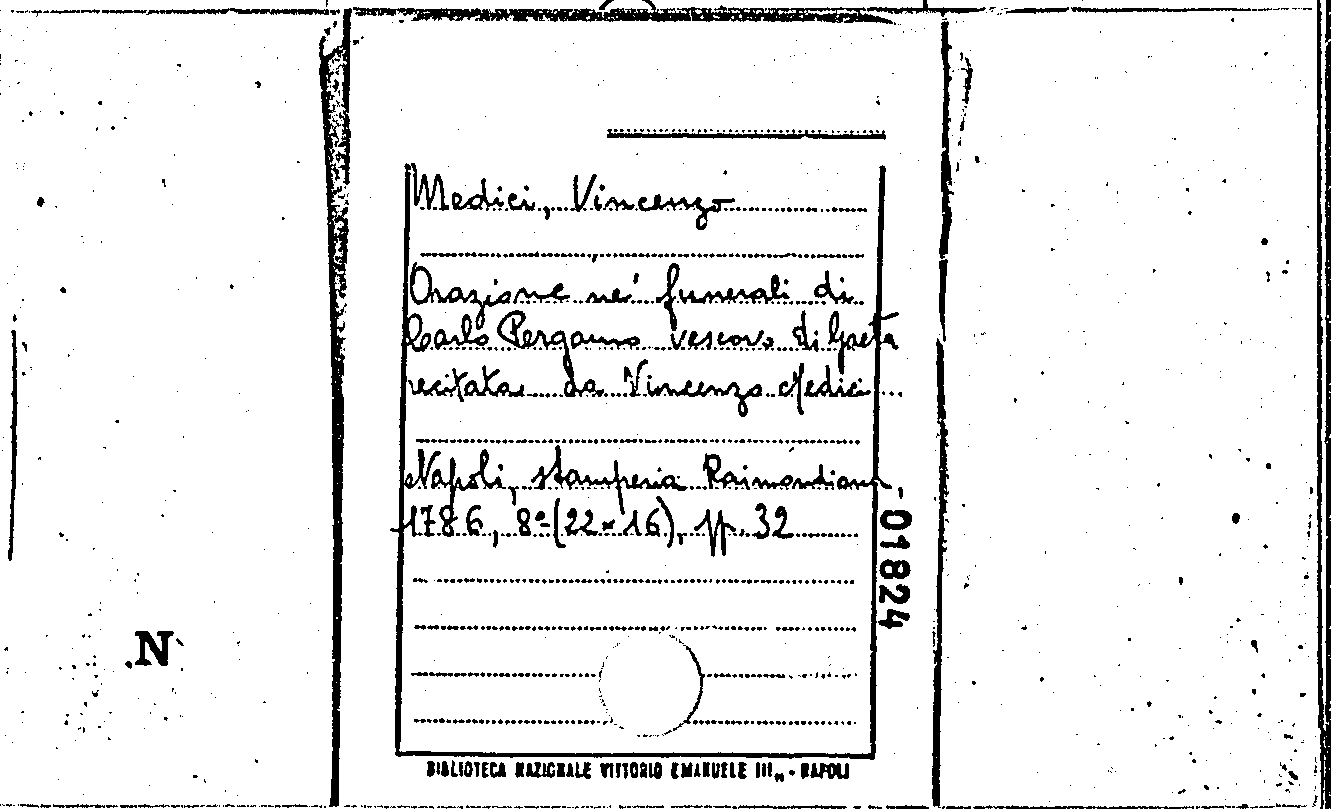 Medici, Vincenzo
Orazione ne' funerali di
Carlo Pergamo vescovo di Gaeta
recitata da Vincenzo Medici
Napoli, stamperia Raimondiana,
1786, 8º (22×16), pp. 32
-01824
N
BIBLIOTECA NAZIONALE VITTORIO EMANUELE III„ - NAPOLI